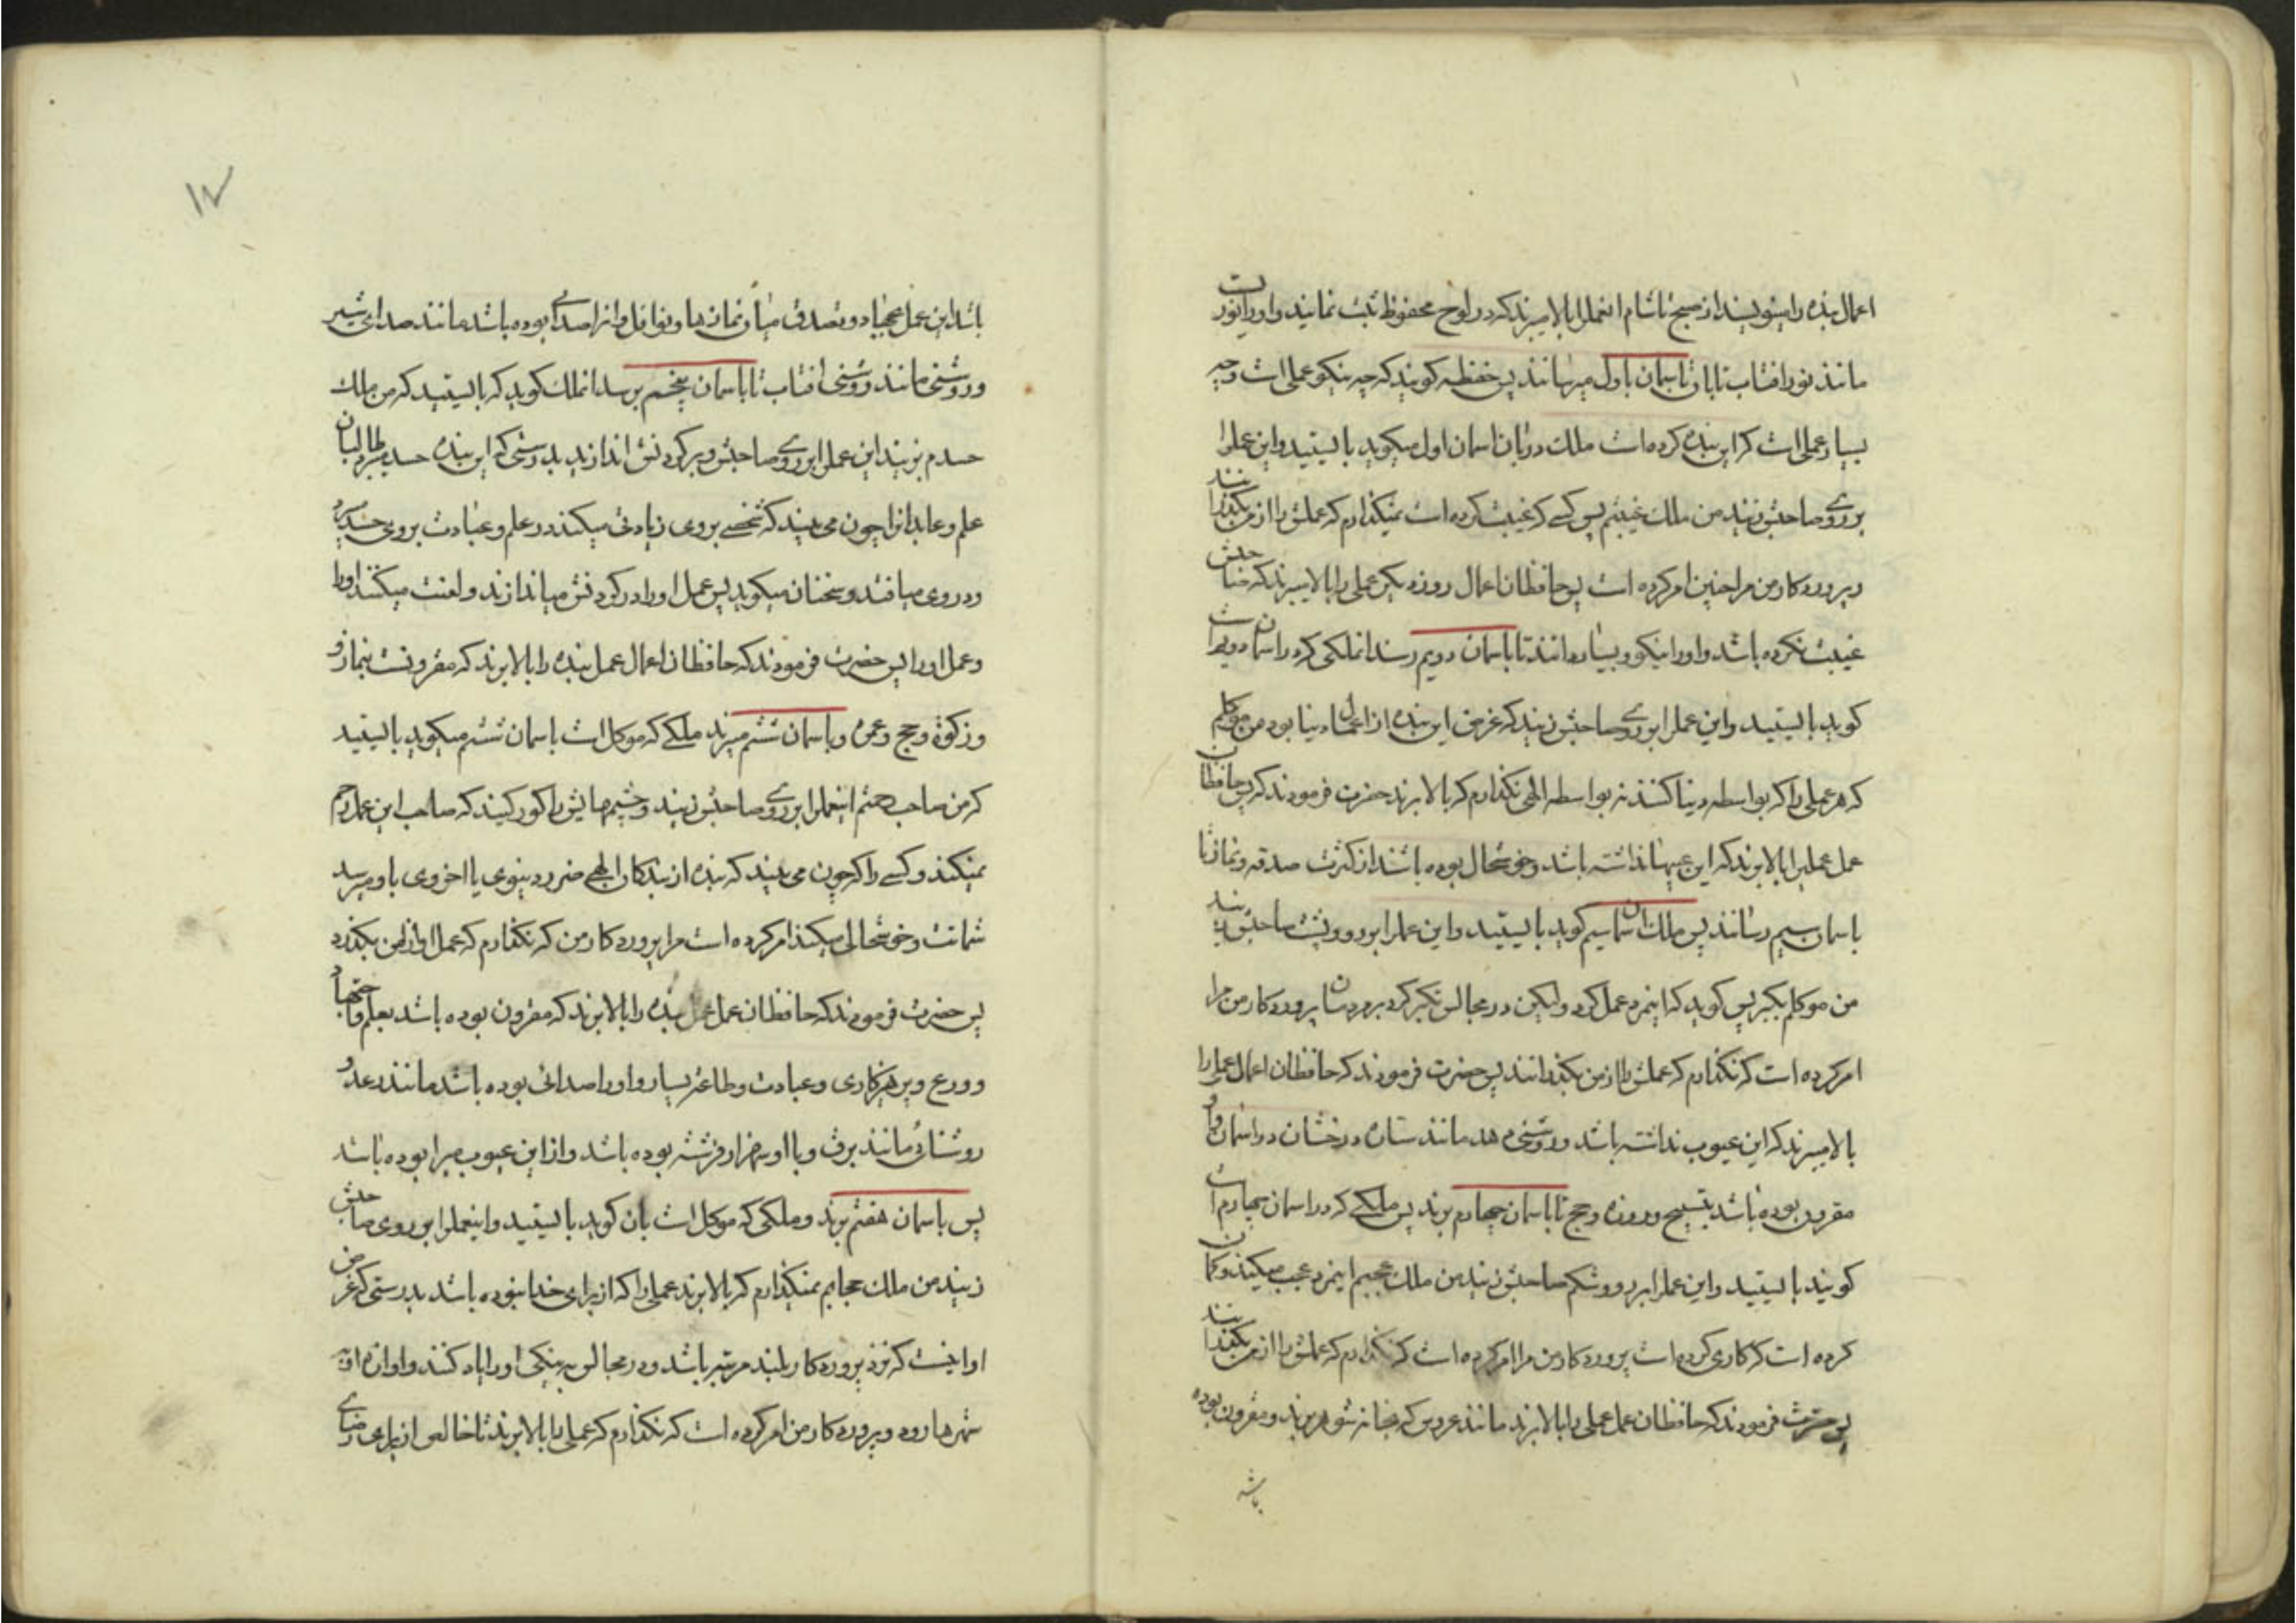 اعمال بنده را مینویسند از صبح تا شام انعمل را بالا میبرند که در لوح محفوظ ثبت نمایند و او را نوریست
مانند نور افتاب تابان تا باسمان اول میرسانند پس حفظه کویند که چه نیکو عملی است و چه
بسیار عملی است که این بنده کرده است ملک دربان اسمان اول میکوید بایستید و این عمل را
بر روی صاحبش زنید من ملک غیبتم پس کسے که غیبت کرده است نمیکذارم که عملش را از من بکذرانند
و پروردکار من مرا چنین امر کرده است پس حافظان اعمال روز دیکر عملی را بالا میبرند که صاحبش
غیبت نکرده باشد و او را نیکو و بسیار دانند تا باسمان دویم رسد انملکی که در اسمان دویم است
کوید بایستید و این عمل را بر روی صاحبش زنید که غرض این بنده از اعمال دنیا بود من موکلم
که هر عملی را که بواسطه دنیا کنند نه بواسطه الهی نکذارم که بالا برند حضرت فرمودند که پس حافظان
عمل عملی را بالا برند که این عیبها نداشته باشد و خوشحال بوده باشند از کثرت صدقه و نماز تا
باسمان سیم رسانند پس ملک اسمان سیم کوید بایستید و این عمل را بر رو و پشت صاحبش زنید
من موکلم بکبر پس کوید که اینمرد عمل کرد ولیکن در مجالس تکبر کرد بر مردمان پروردکار من مرا
امر کرده است که نکذارم که عملش را از من بکذرانند پس حضرت فرمودند که حافظان اعمال عملی را
بالا میبرند که این عیوب نداشته باشد و روشنی دهد مانند ستاره درخشان در اسمان و
مقرون بوده باشد بتسبیح و روزه و حج تا باسمان چهارم برند پس ملکے که در اسمان چهارم است
کویند بایستید و این عمل را بر رو و شکم صاحبش زنید من ملک عجبم اینمرد عجب میکند و کمان
کرده است که کاری کرده است پروردکار من مرا امر کرده است که نکذارم که عملش را از من بکذرانند
پس حضرت فرمودند که حافظان عمل عملی را بالا برند مانند عروس که بخانه شوهر برند و مقرون بوده
باشد
۱۷
باشد این عمل بجهاد و تصدق میان نمازها و نوافل و انرا صدائے بوده باشد مانند صدای شیر
و روشنی مانند روشنی افتاب تا باسمان پنجم برسد انملک کوید که بایستید که من ملک
حسدم بزنید این عمل را بر روی صاحبش و بر کردنش اندازید بدرستی که این بنده حسد بر طالبان
علم و عابدان چون می بیند که شخصے بروی زیادتی میکند در علم و عبادت بروی حسد
و در وی میافتد و سخنان میکوید پس عمل او را در کردنش میاندازند و لعنت میکنند او را
و عمل او را پس حضرت فرمودند که حافظان اعمال عمل بنده را بالا برند که مقرونست بنماز و
و زکوة و حج و عمره و باسمان ششم میبرند ملکے که موکل است باسمان ششم میکوید بایستید
که من صاحب رحمتم اینعمل را بر روی صاحبش زنید و چشمهایش را کور کنید که صاحب این عمل رحم
نمیکند و کسے را که چون می بیند که بنده از بندکان الهی ضرر دنیوی یا اخروی باو میرسد
شماتت و خوشحالی میکند امر کرده است مرا پروردکار من که نکذارم که عمل او از من بکذرد
پس حضرت فرمودند که حافظان عمل عمل بنده را بالا برند که مقرون بوده باشد بعلم و
و ورع و پرهیزکاری و عبادت و طاعت بسیار و او را صدائی بوده باشد مانند رعد و
روشنائی مانند برق و با او سه هزار فرشته بوده باشد و از این عیوب مبرا بوده باشد
پس باسمان هفتم برند و ملکی که موکل است بان کوید بایستید و اینعمل را بر روی صاحبش
زنید من ملک حجابم نمیکذارم که بالا برند عملی را که از برای خدا نبوده باشد بدرستی که غرض
او اینست که نزد پروردکار بلند مرتبه باشد و در مجالس به نیکی او را یاد کنند و اوازه او به
شهرها رود و پروردکار من امر کرده است که نکذارم که عملی را بالا برند تا خالص از برای رضای